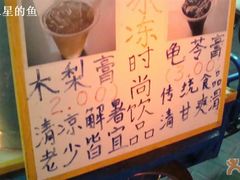 星的鱼
冰冻时尚饮品
木梨膏
2.00
清凉解暑
老少皆宜
龟苓膏
3.00
传统食品
清甘爽滑